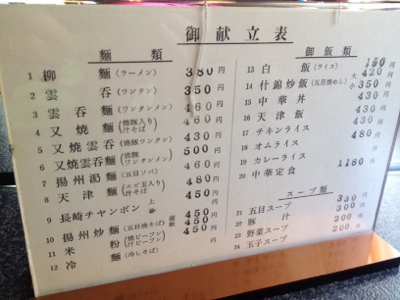 御献立表
麺類
1 柳麺(ラーメン) 380円
2 雲呑(ワンタン) 350円
3 雲呑麺(ワンタンメン) 460円
4 叉焼麺(焼豚入り汁そば) 460円
5 叉焼雲呑(焼豚ワンタン) 430円
6 叉焼雲呑麺(焼豚ワンタンメン) 500円
7 揚州湯麺(五目ソバ) 460円
8 天津麺(エビ玉入り汁そば) 480円
9 長崎チャンポン 450円
10 揚州炒麺(五目焼そば) 450円
11 米粉(焼ビーフン 汁ビーフン) 450円
12 冷麺(冷しそば)
御飯類
13 白飯(ライス) 150円
14 什錦炒飯(五目焼めし) 大420円 小350円
15 中華丼 430円
16 天津飯 430円
17 チキンライス 480円
18 オムライス
19 カレーライス
20 中華定食 1160円
スープ類
21 五目スープ 330円
22 豚汁 300円
23 野菜スープ
24 玉子スープ